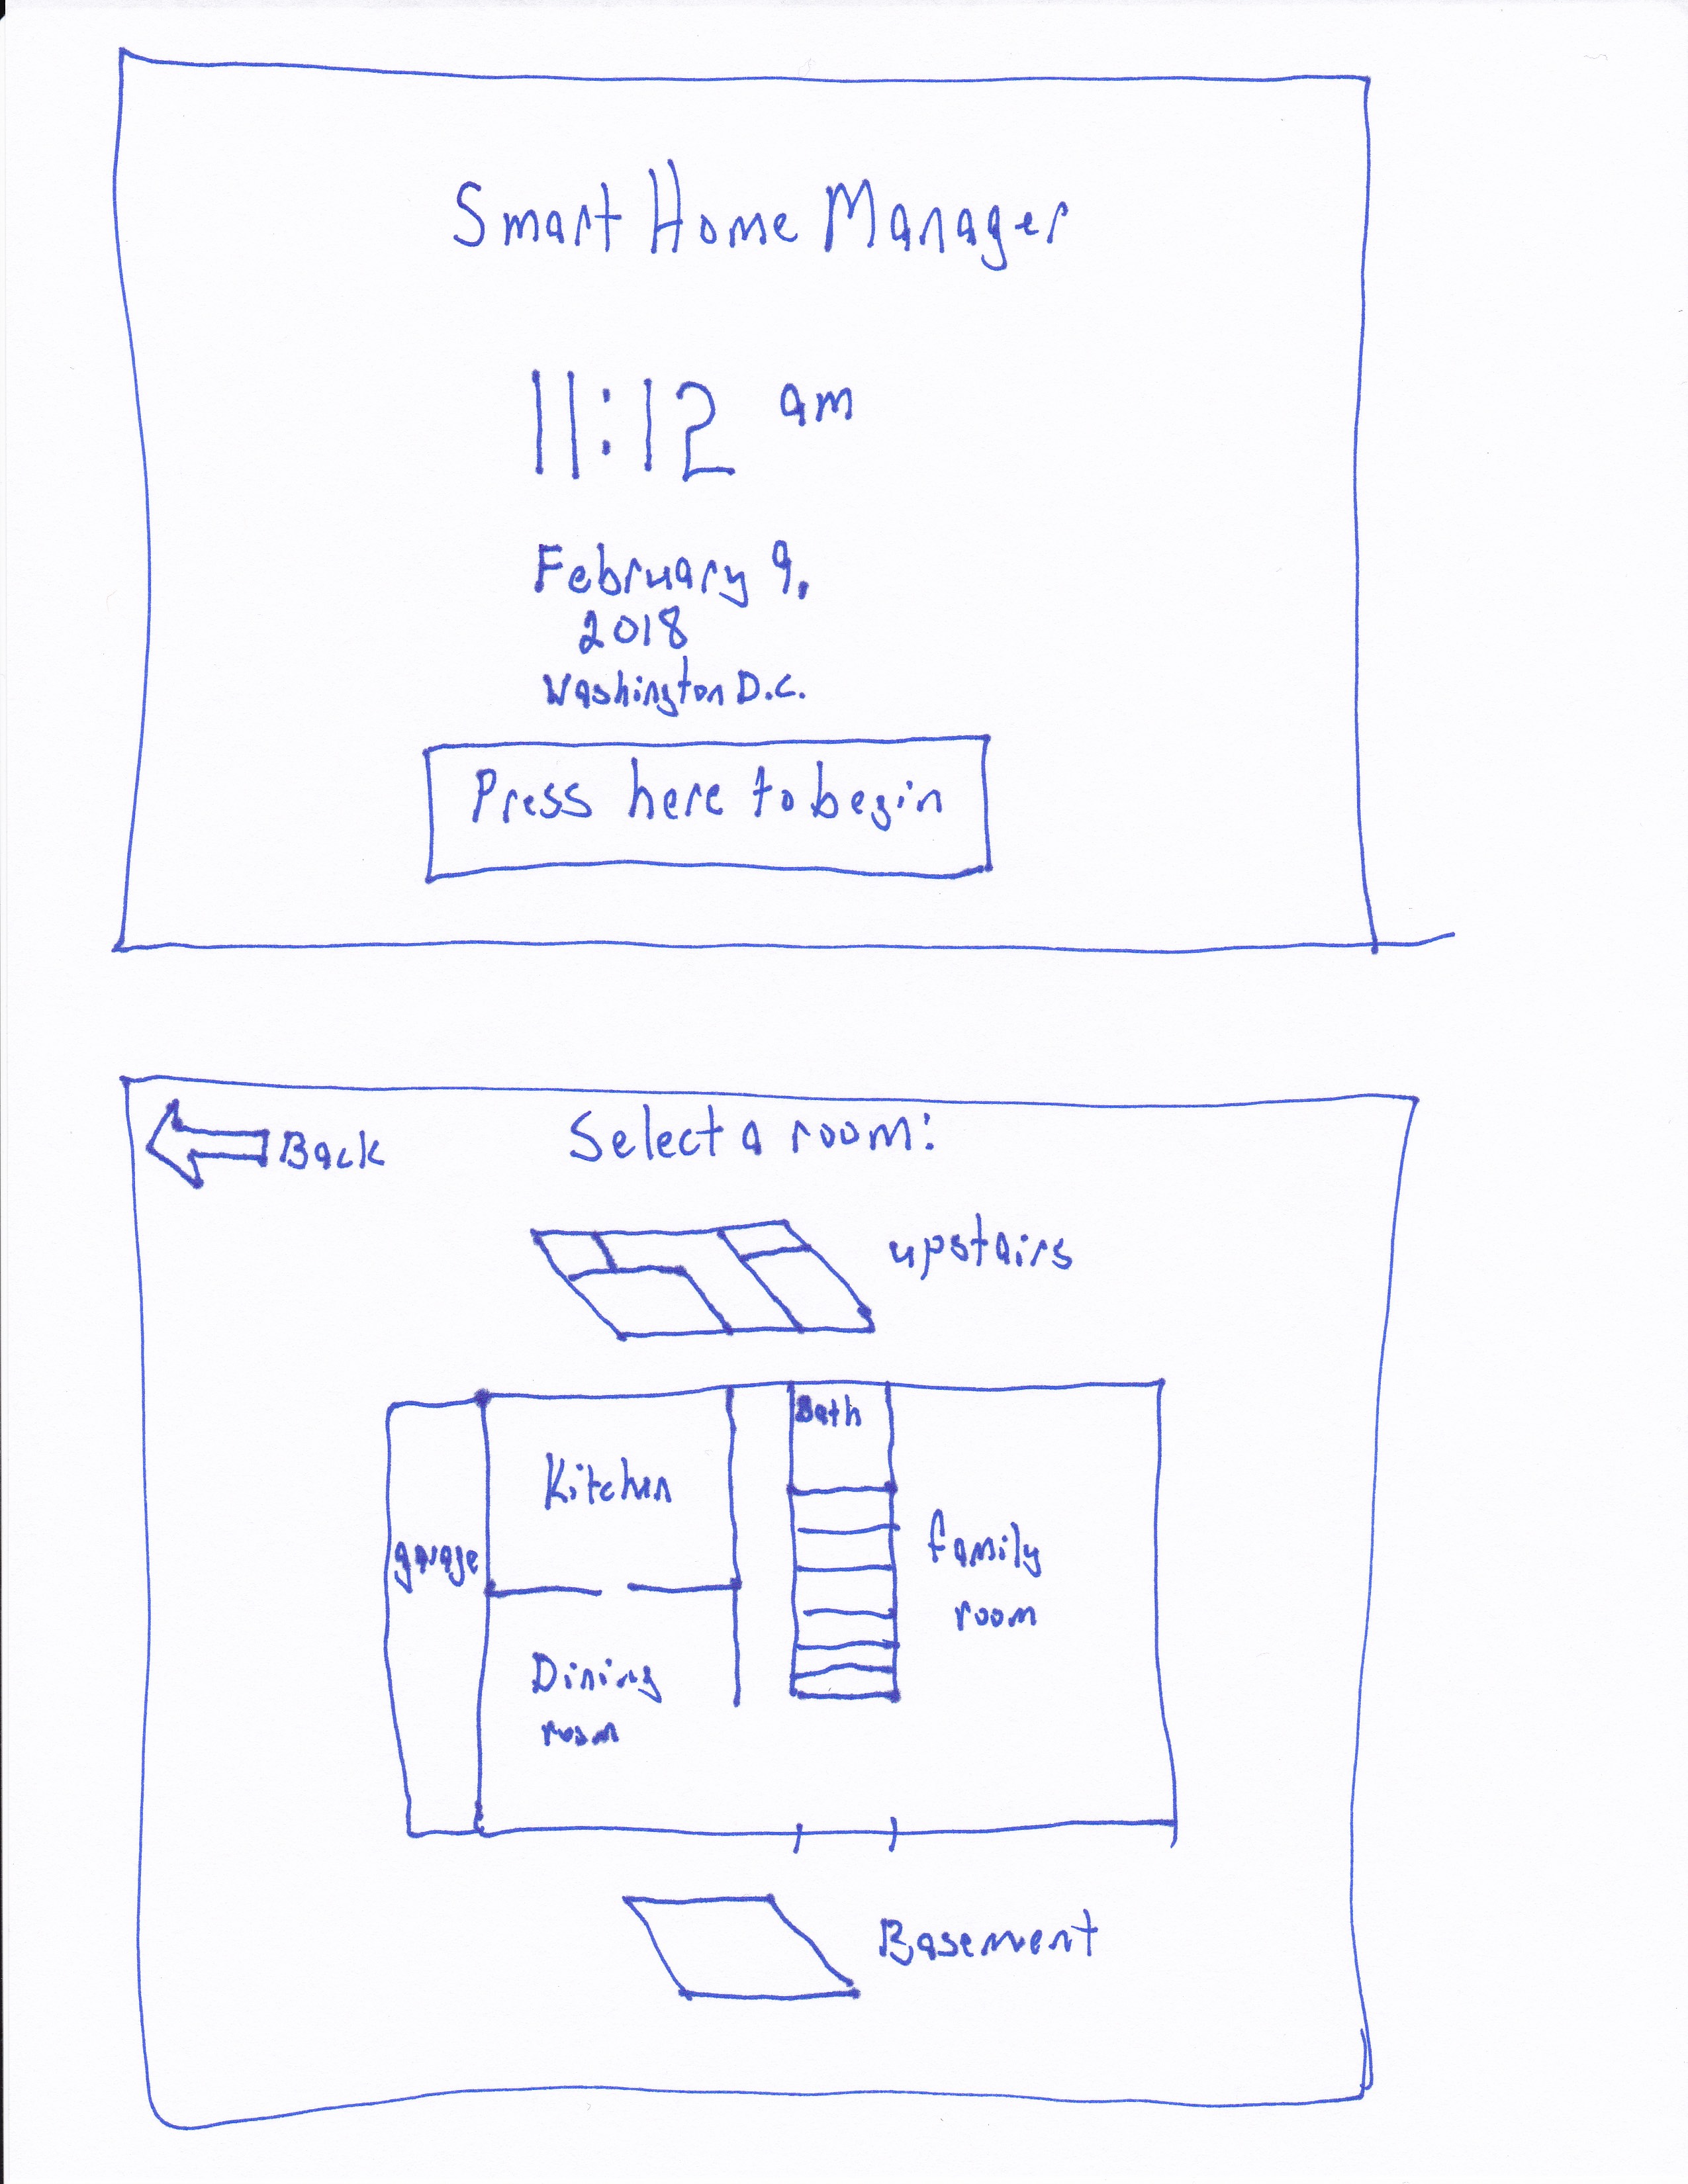 Smart Home Manager
11:12 am
February 9,
2018
Washington D.C.
Press here to begin
Back
Select a room:
upstairs
Bath
Kitchen
garage
family
room
Dining
room
Basement